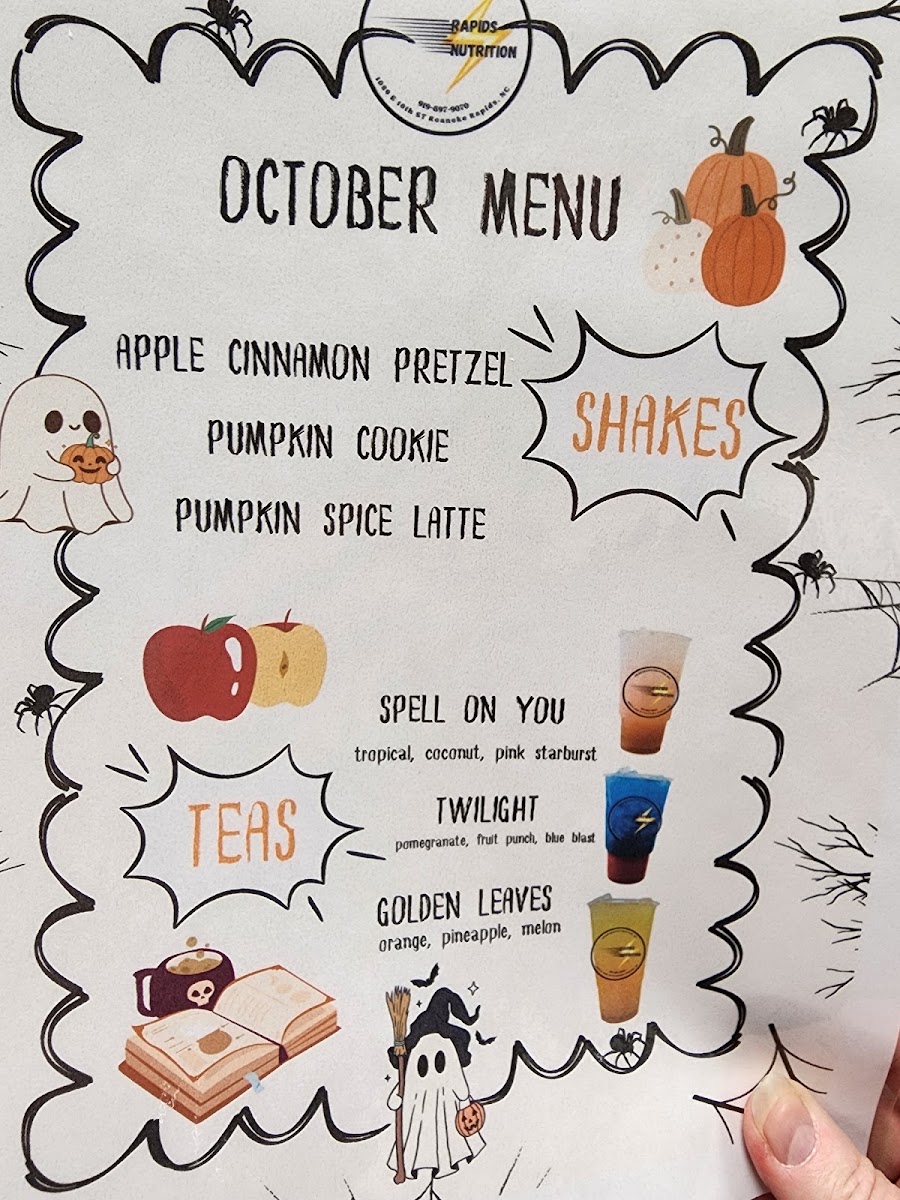 RAPIDS
NUTRITION
919-697-9070
1066 E 10th ST Roanoke Rapids, NC
OCTOBER MENU
APPLE CINNAMON PRETZEL
PUMPKIN COOKIE
PUMPKIN SPICE LATTE
SHAKES
TEAS
SPELL ON YOU
tropical, coconut, pink starburst
TWILIGHT
pomegranate, fruit punch, blue blast
GOLDEN LEAVES
orange, pineapple, melon